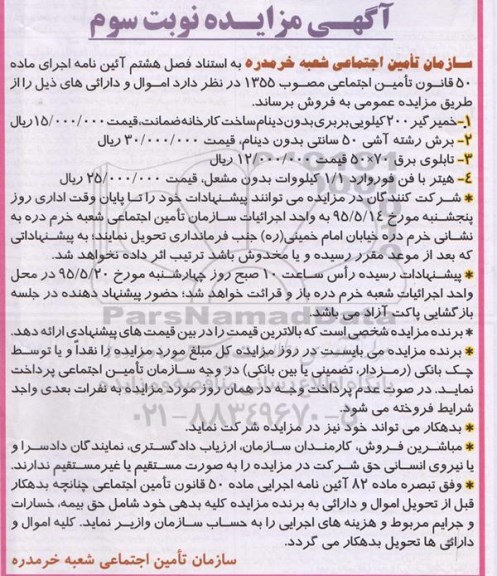 آگهی مزایده نوبت سوم
سازمان تأمین اجتماعی شعبه خرمدره به استناد فصل هشتم آئین نامه اجرای ماده
۵۰ قانون تأمین اجتماعی مصوب ۱۳۵۵ در نظر دارد اموال و دارائی های ذیل را از
طریق مزایده عمومی به فروش برساند.
۱- خمیر گیر ۲۰۰ کیلویی بربری بدون دینام ساخت کارخانه ضمانت، قیمت ۱۵/۰۰۰/۰۰۰ ریال
۲- برش رشته آشی ۵۰ سانتی بدون دینام، قیمت ۳۰/۰۰۰/۰۰۰ ریال
۳- تابلوی برق ۷۰×۵۰ قیمت ۱۲/۰۰۰/۰۰۰ ریال
۴- هیتر با فن فوروارد ۱/۱ کیلووات بدون مشعل، قیمت ۲۵/۰۰۰/۰۰۰ ریال
* شرکت کنندگان در مزایده می توانند پیشنهادات خود را تا پایان وقت اداری روز
پنجشنبه مورخ ۹۵/۵/۱۴ به واحد اجرائیات سازمان تأمین اجتماعی شعبه خرم دره به
نشانی خرم دره خیابان امام خمینی(ره) جنب فرمانداری تحویل نمایند، به پیشنهاداتی
که بعد از موعد مقرر رسیده و یا مخدوش باشد ترتیب اثر داده نخواهد شد.
* پیشنهادات رسیده رأس ساعت ۱۰ صبح روز چهارشنبه مورخ ۹۵/۵/۲۰ در محل
واحد اجرائیات شعبه خرم دره باز و قرائت خواهد شد؛ حضور پیشنهاد دهنده در جلسه
بازگشایی پاکت آزاد می باشد.
* برنده مزایده شخصی است که بالاترین قیمت را در بین قیمت های پیشنهادی ارائه دهد.
* برنده مزایده می بایست در روز مزایده کل مبلغ مورد مزایده را نقداً و یا توسط
چک بانکی (رمزدار، تضمینی یا بین بانکی) در وجه سازمان تأمین اجتماعی پرداخت
نماید. در صوت عدم پرداخت وجه در همان روز مورد مزایده به نفرات بعدی واجد
شرایط فروخته می شود.
* بدهکار می تواند خود نیز در مزایده شرکت نماید.
* مباشرین فروش، کارمندان سازمان، ارزیاب دادگستری، نمایندگان دادسرا و
یا نیروی انسانی حق شرکت در مزایده را به صورت مستقیم یا غیرمستقیم ندارند.
* وفق تبصره ماده ۸۲ آئین نامه اجرایی ماده ۵۰ قانون تأمین اجتماعی چنانچه بدهکار
قبل از تحویل اموال و دارائی به برنده مزایده کلیه بدهی خود شامل حق بیمه، خسارات
و جرایم مربوط و هزینه های اجرایی را به حساب سازمان واریز نماید. کلیه اموال و
دارائی ها تحویل بدهکار می گردد.
سازمان تأمین اجتماعی شعبه خرمدره
ParsNamadData
۰۲۱-۸۸۳۴۹۶۷۰-۵